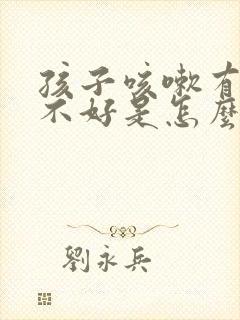 孩子咳嗽有
不好是怎麼
劉永兵